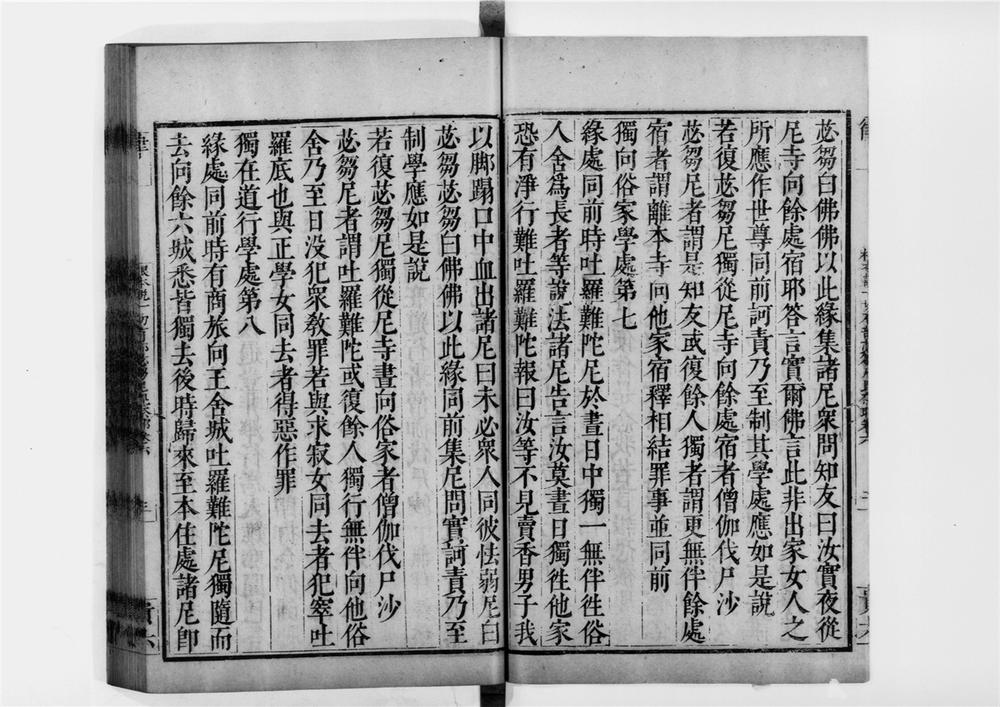 苾芻白佛佛以此緣集諸尼衆問知友曰汝實夜從
尼寺向餘處宿耶答言實爾佛言此非出家女人之
所應作世尊同前訶責乃至制其學處應如是說
若復苾芻尼獨從尼寺向餘處宿者僧伽伐尸沙
苾芻尼者謂是知友或復餘人獨者謂更無伴餘處
宿者謂離本寺向他家宿釋相結罪事並同前
獨向俗家學處第七
緣處同前時吐羅難陀尼於晝日中獨一無伴徃俗
人舍爲長者等說法諸尼告言汝莫晝日獨徃他家
恐有淨行難吐羅難陀報曰汝等不見賣香男子我
以脚蹋口中血出諸尼曰未必衆人同彼怯弱尼白
苾芻苾芻白佛佛以此緣同前集尼問實訶責乃至
制學應如是說
若復苾芻尼獨從尼寺晝向俗家者僧伽伐尸沙
苾芻尼者謂吐羅難陀或復餘人獨行無伴向他俗
舍乃至日没犯衆教罪若與求寂女同去者犯窣吐
羅底也與正學女同去者得惡作罪
獨在道行學處第八
緣處同前時有商旅向王舍城吐羅難陀尼獨隨而
去向餘六城悉皆獨去後時歸來至本住處諸尼卽